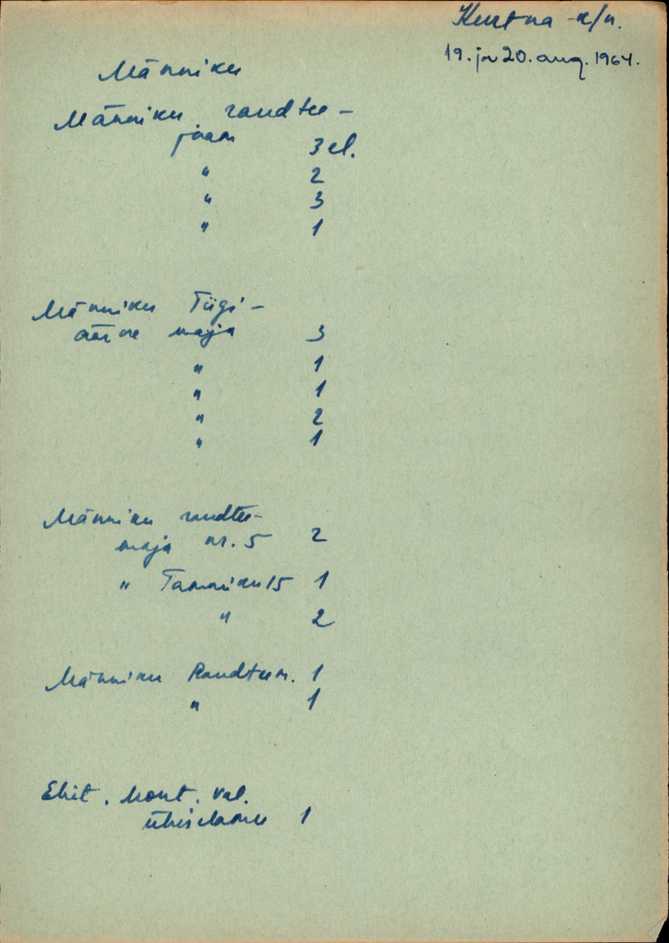 Kurtna k/n.
19. ja 20. aug. 1964.
Männiku
Männiku raudtee-
jaam 3 el.
" 2
" 3
" 1
Männiku Tiigi-
äärne maja 3
" 1
" 1
" 2
" 1
Männiku raudtee-
maja nr. 5 2
" Tammiku 15 1
" 2
Männiku Raudteem. 1
" 1
Ehit. Mont. Val.
ühiselamu 1